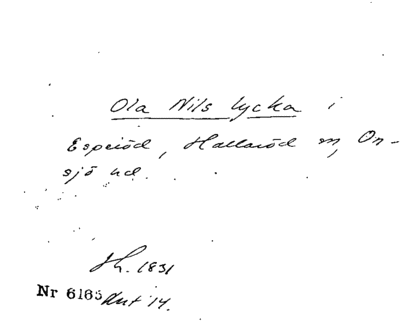 Ola Nils lycka i
Esperöd, Hallaröd m, On-
sjö hd.
Jh. 1831
Nr 6165 Knt 14.